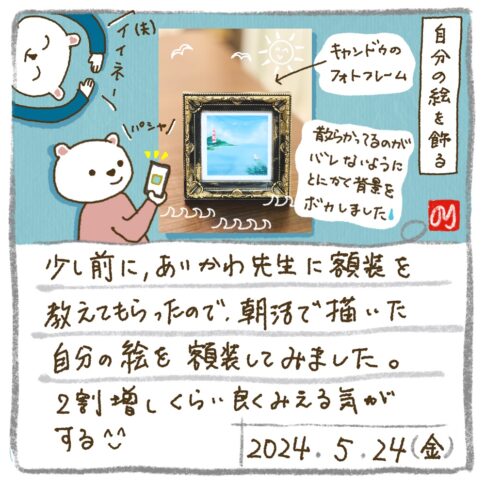 自分の絵を飾る
イイネー
(夫)
パシャ
キャンドゥの
フォトフレーム
散らかってるのが
バレないように
とにかく背景を
ボカしました
少し前に,あいかわ先生に額装を
教えてもらったので、朝活で描いた
自分の絵を額装してみました。
2割増しくらい良くみえる気が
する
2024.5.24(金)